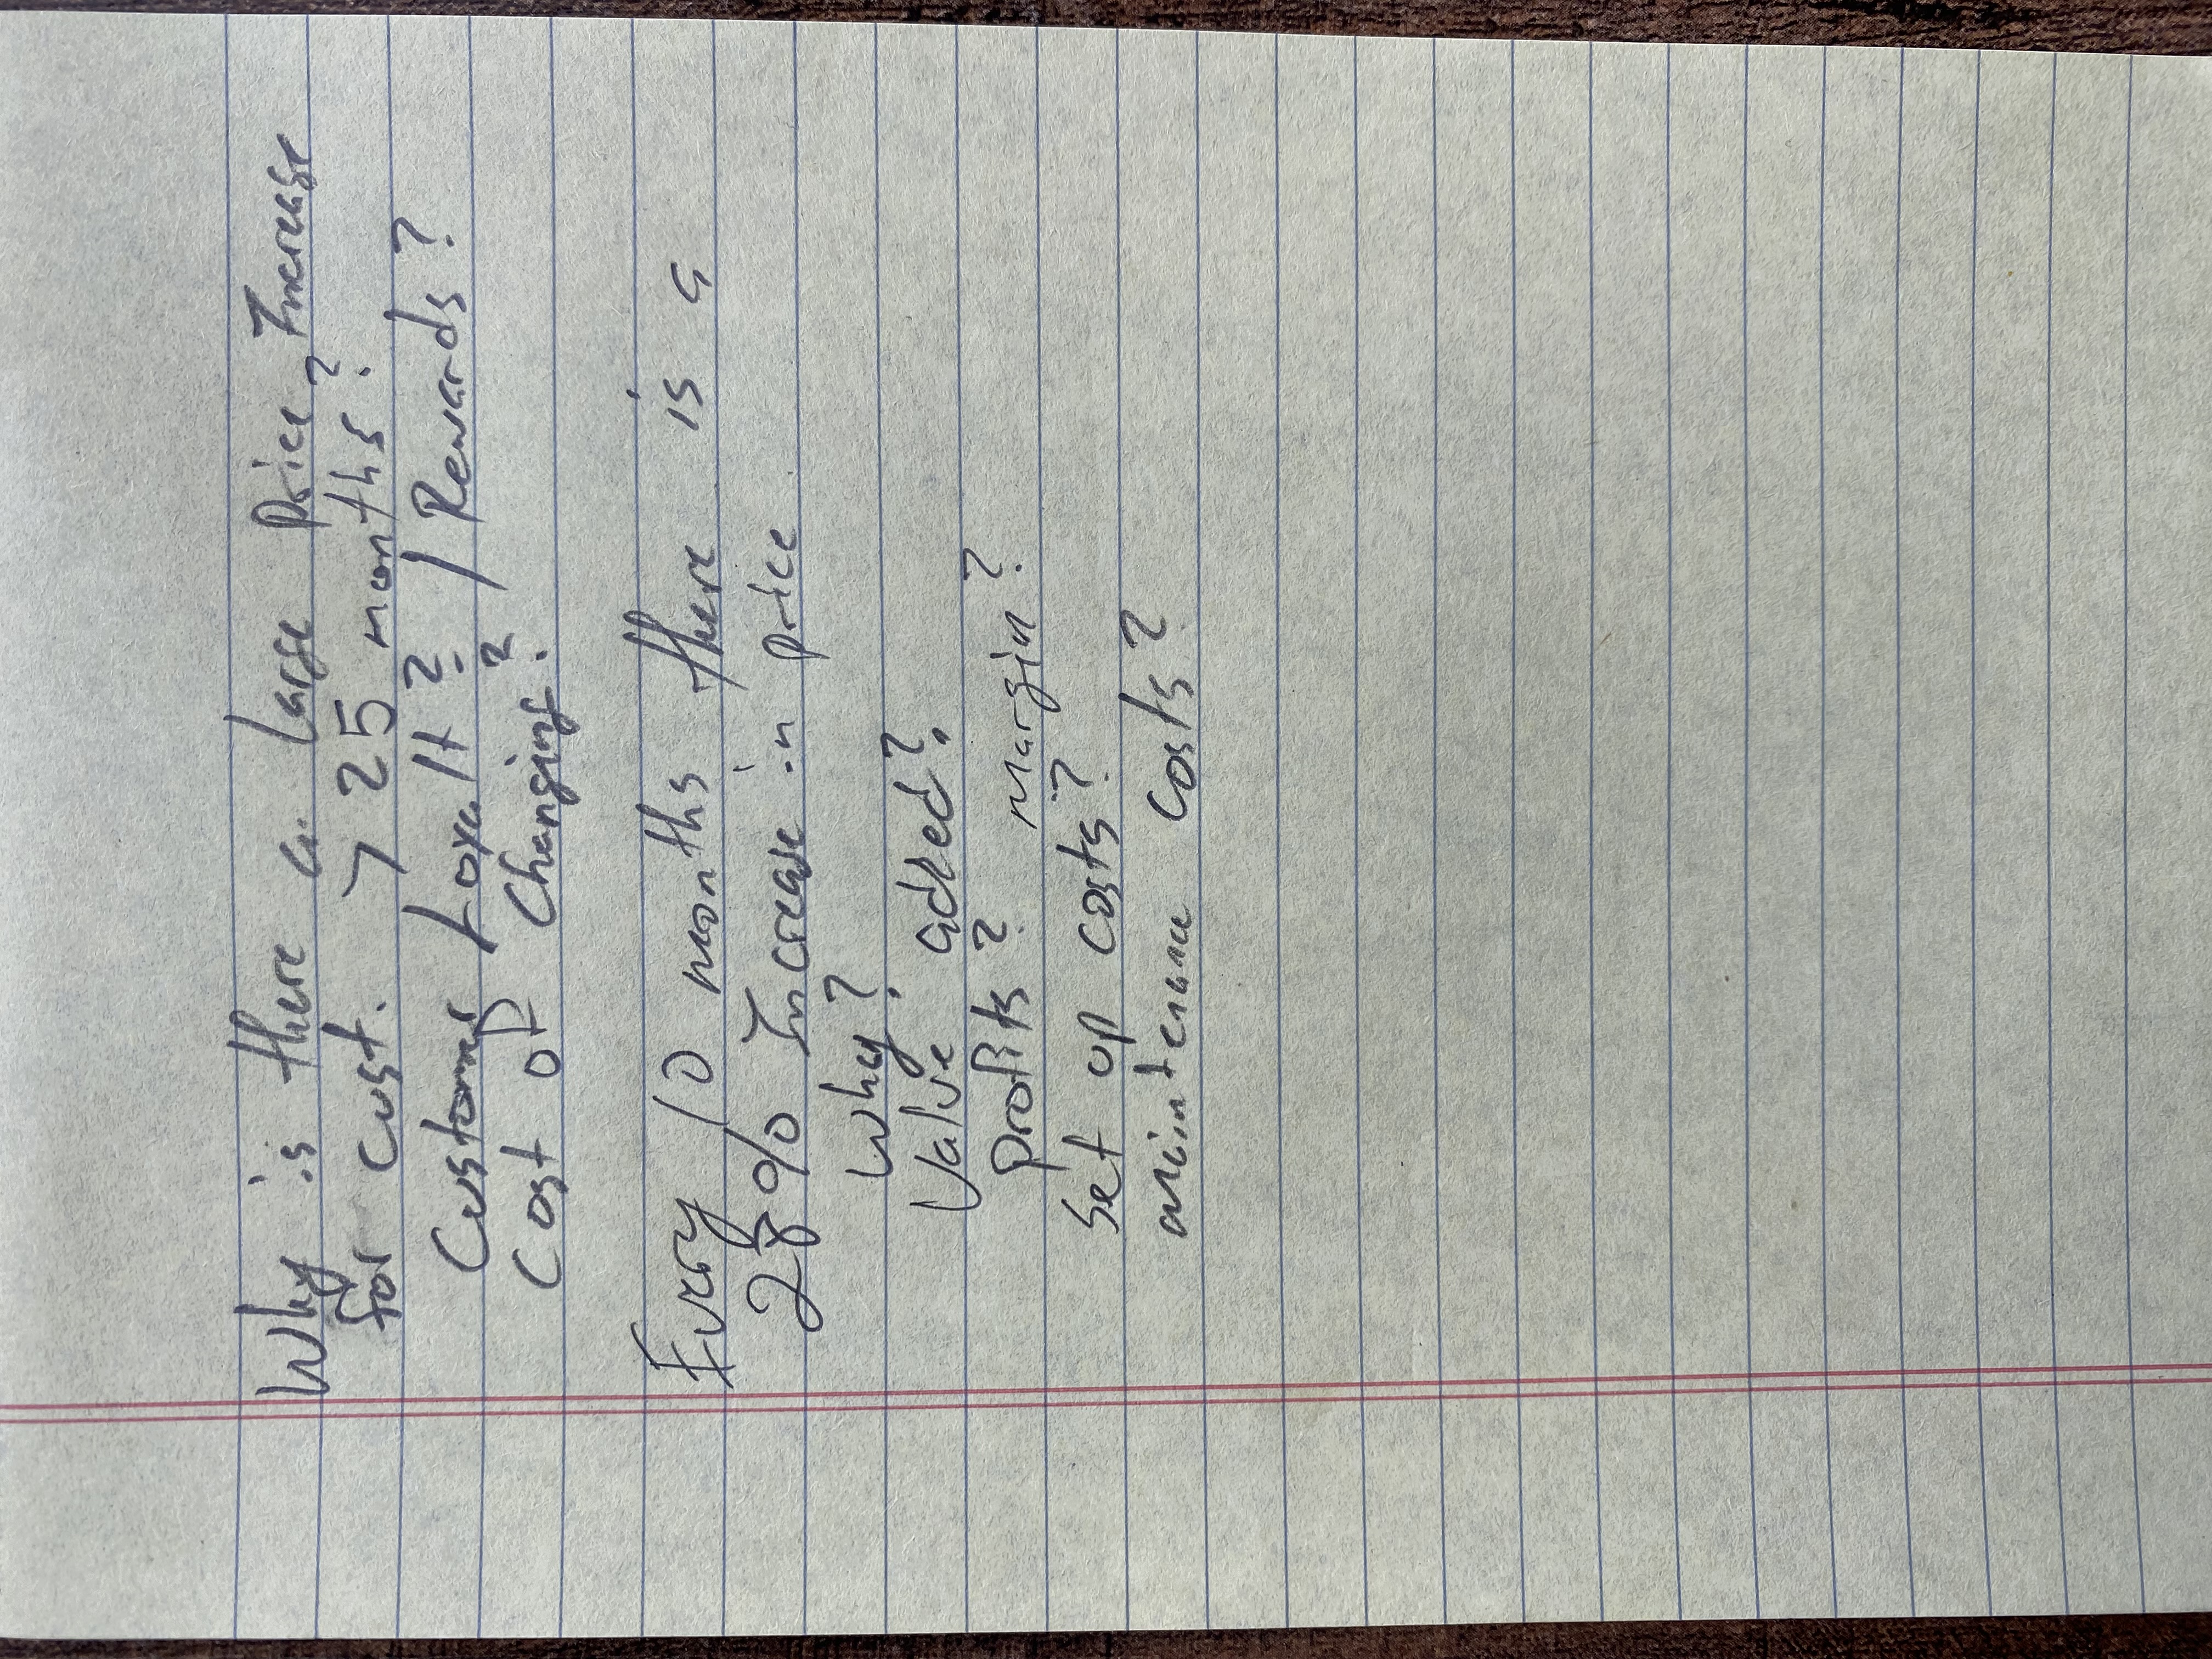 Why is there a large Price Increase
for cust. > 25 months?
Customer Loyalt? / Rewards?
Cost of Changing?
Every 10 months there is a
28% Increase in price
Why?
Value added?
profits? Margin?
Set up costs?
maintenance costs?